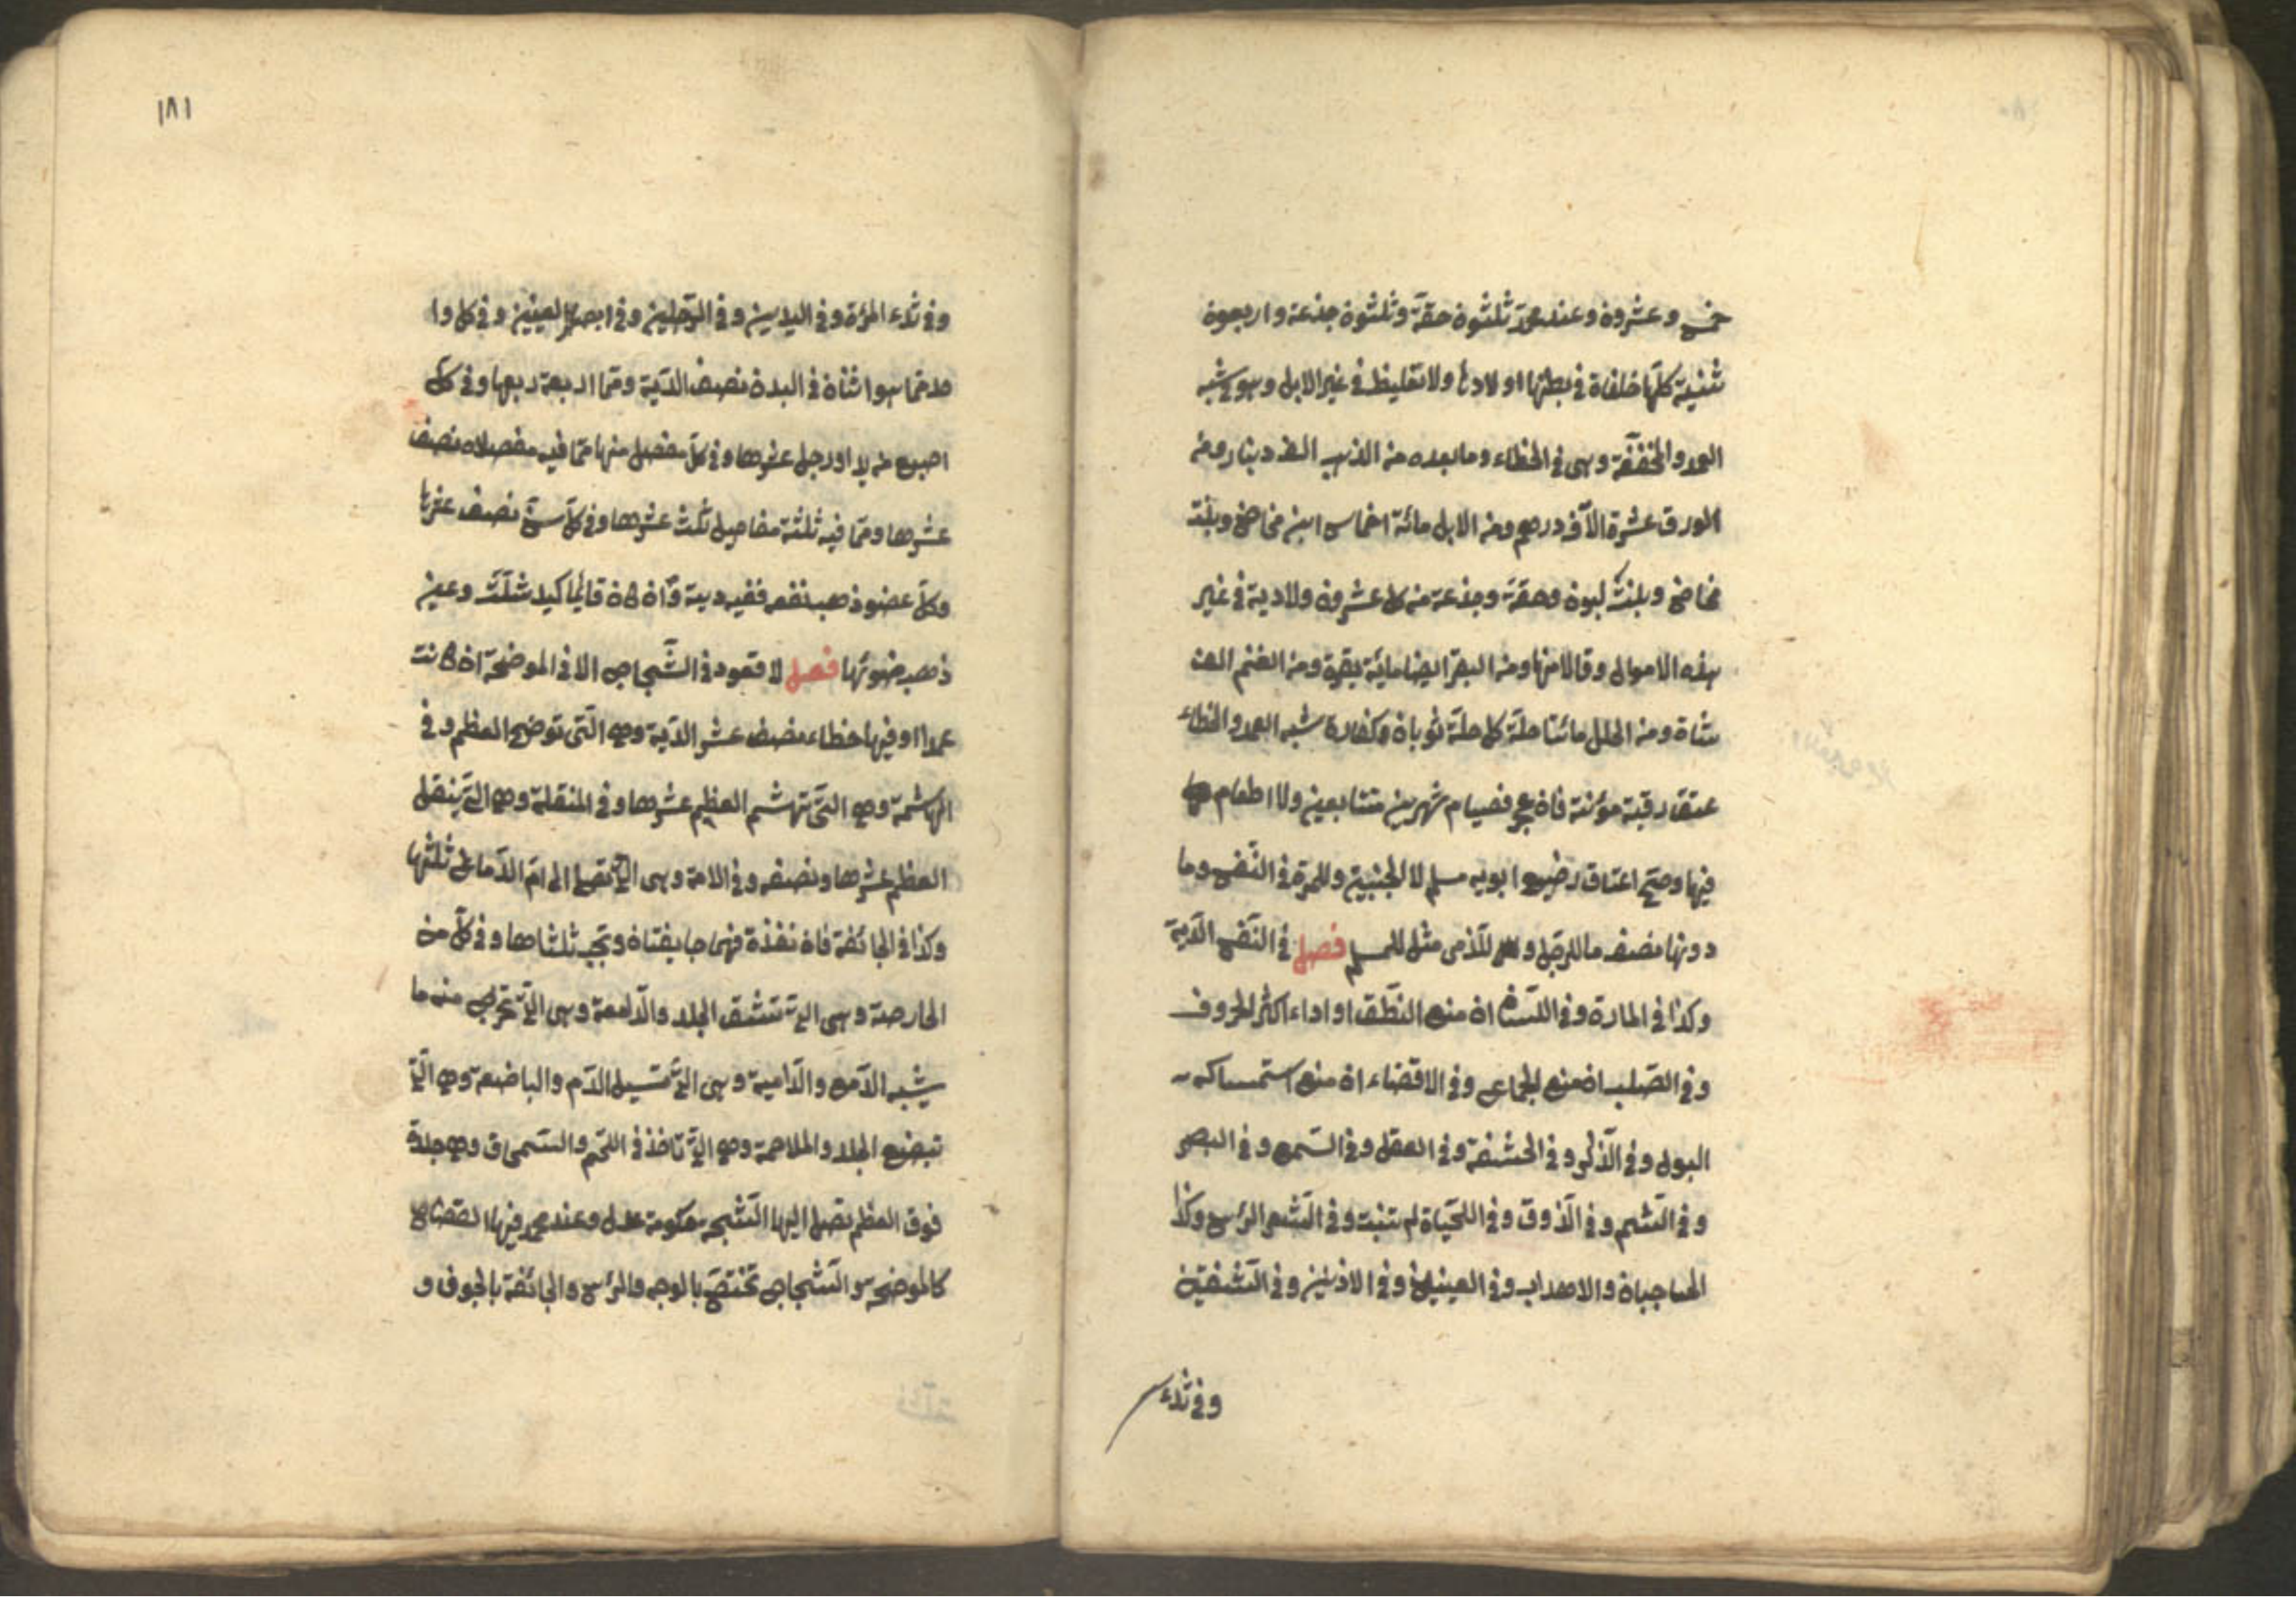 خمس وعشرون وعند محمد ثلثون حقة وثلثون جذعة واربعون
ثنية كلها خلفاة في بطنها اولادها ولا تغليظ في غير الابل وهو في شبه
العمد والمخففة وهى في الخطاء وما بعده من الذهب الف دينار ومن
الورق عشرة الآف درهم ومن الابل مائة اخماس ابن مخاض وبنت
مخاض وبنت لبون وحقة وجذعة من كل عشرون ولا دية في غير
هذه الاموال وقالا منها ومن البقر ايضا مائة بقرة ومن الغنم الف
شاة ومن الحلل مائتا حلة كل حلة ثوبان وكفارة شبه العمد والخطاء
عتق رقبة مؤمنة فان عجز فصيام شهرين متتابعين ولا اطعام
فيها وصح اعتاق رضيع ابويه مسلم لا الجنين وللمرة في النفس وما
دونها نصف ما للرجل وللذمى مثل للمسلم فصل في النفس الدية
وكذا في المارن وفي اللسان ان منع النطق او اداء اكثر الحروف
وفي الصلب ان منع الجماع وفي الافضاء ان منع استمساك
البول وفي الذكر وفي الحشفة وفي العقل وفي السمع وفي البصر
وفي الشم وفي الذوق وفي اللحية ان لم تنبت وفي الشعر الرأس وكذا
الحاجبان والاهداب وفي العينين وفي الاذنين وفي الشفتين
وفي ثدء
١٨١
وفي ثدء المرة وفي اليدين وفي الرجلين وفي العينين وفي كل وا
حد مما هو اثنان في البدن نصف الدية ومما اربعة ربعها وفي كل
اصبع من يد او رجل عشرها وفي كل مفصل منها مما فيه مفصلان نصف
عشرها ومما فيه ثلثة مفاصيل ثلث عشرها وفي كل سن نصف عشرها
وكل عضو ذهب نفعه ففيه دية وان كان قايما كيد شلت وعين
ذهب ضوئها فصل لا قعود في الشجاج الا في الموضحة ان كانت
عمدا وفيها خطاء نصف عشر الدية وهى التى توضح العظم وفي
الهاشمة وهى التى تهشم العظم عشرها وفي المنقلة وهى التى ينقل
العظم عشرها ونصفه وفي الامة وهى التى تصل الى ام الدماغ ثلثها
وكذا في الجائفة فان نفذة فهى جايفتان ويجب ثلثاها وفي كل من
الحارصة وهى التى تشق الجلد والدامعة وهى التى تخرج منه ما
يشبه الدمع والدامية وهى التى تسيل الدم والباضعة وهى التى
تبضع الجلد والملاحمة وهى التى تأخذ في اللحم والسمحاق وهى جلدة
فوق العظم تصل اليها الشجة حكومة عدل وعند محمد فيها القصاص
كالموضحة والشجاج تختص بالوجه والرأس والجائفة بالجوف و